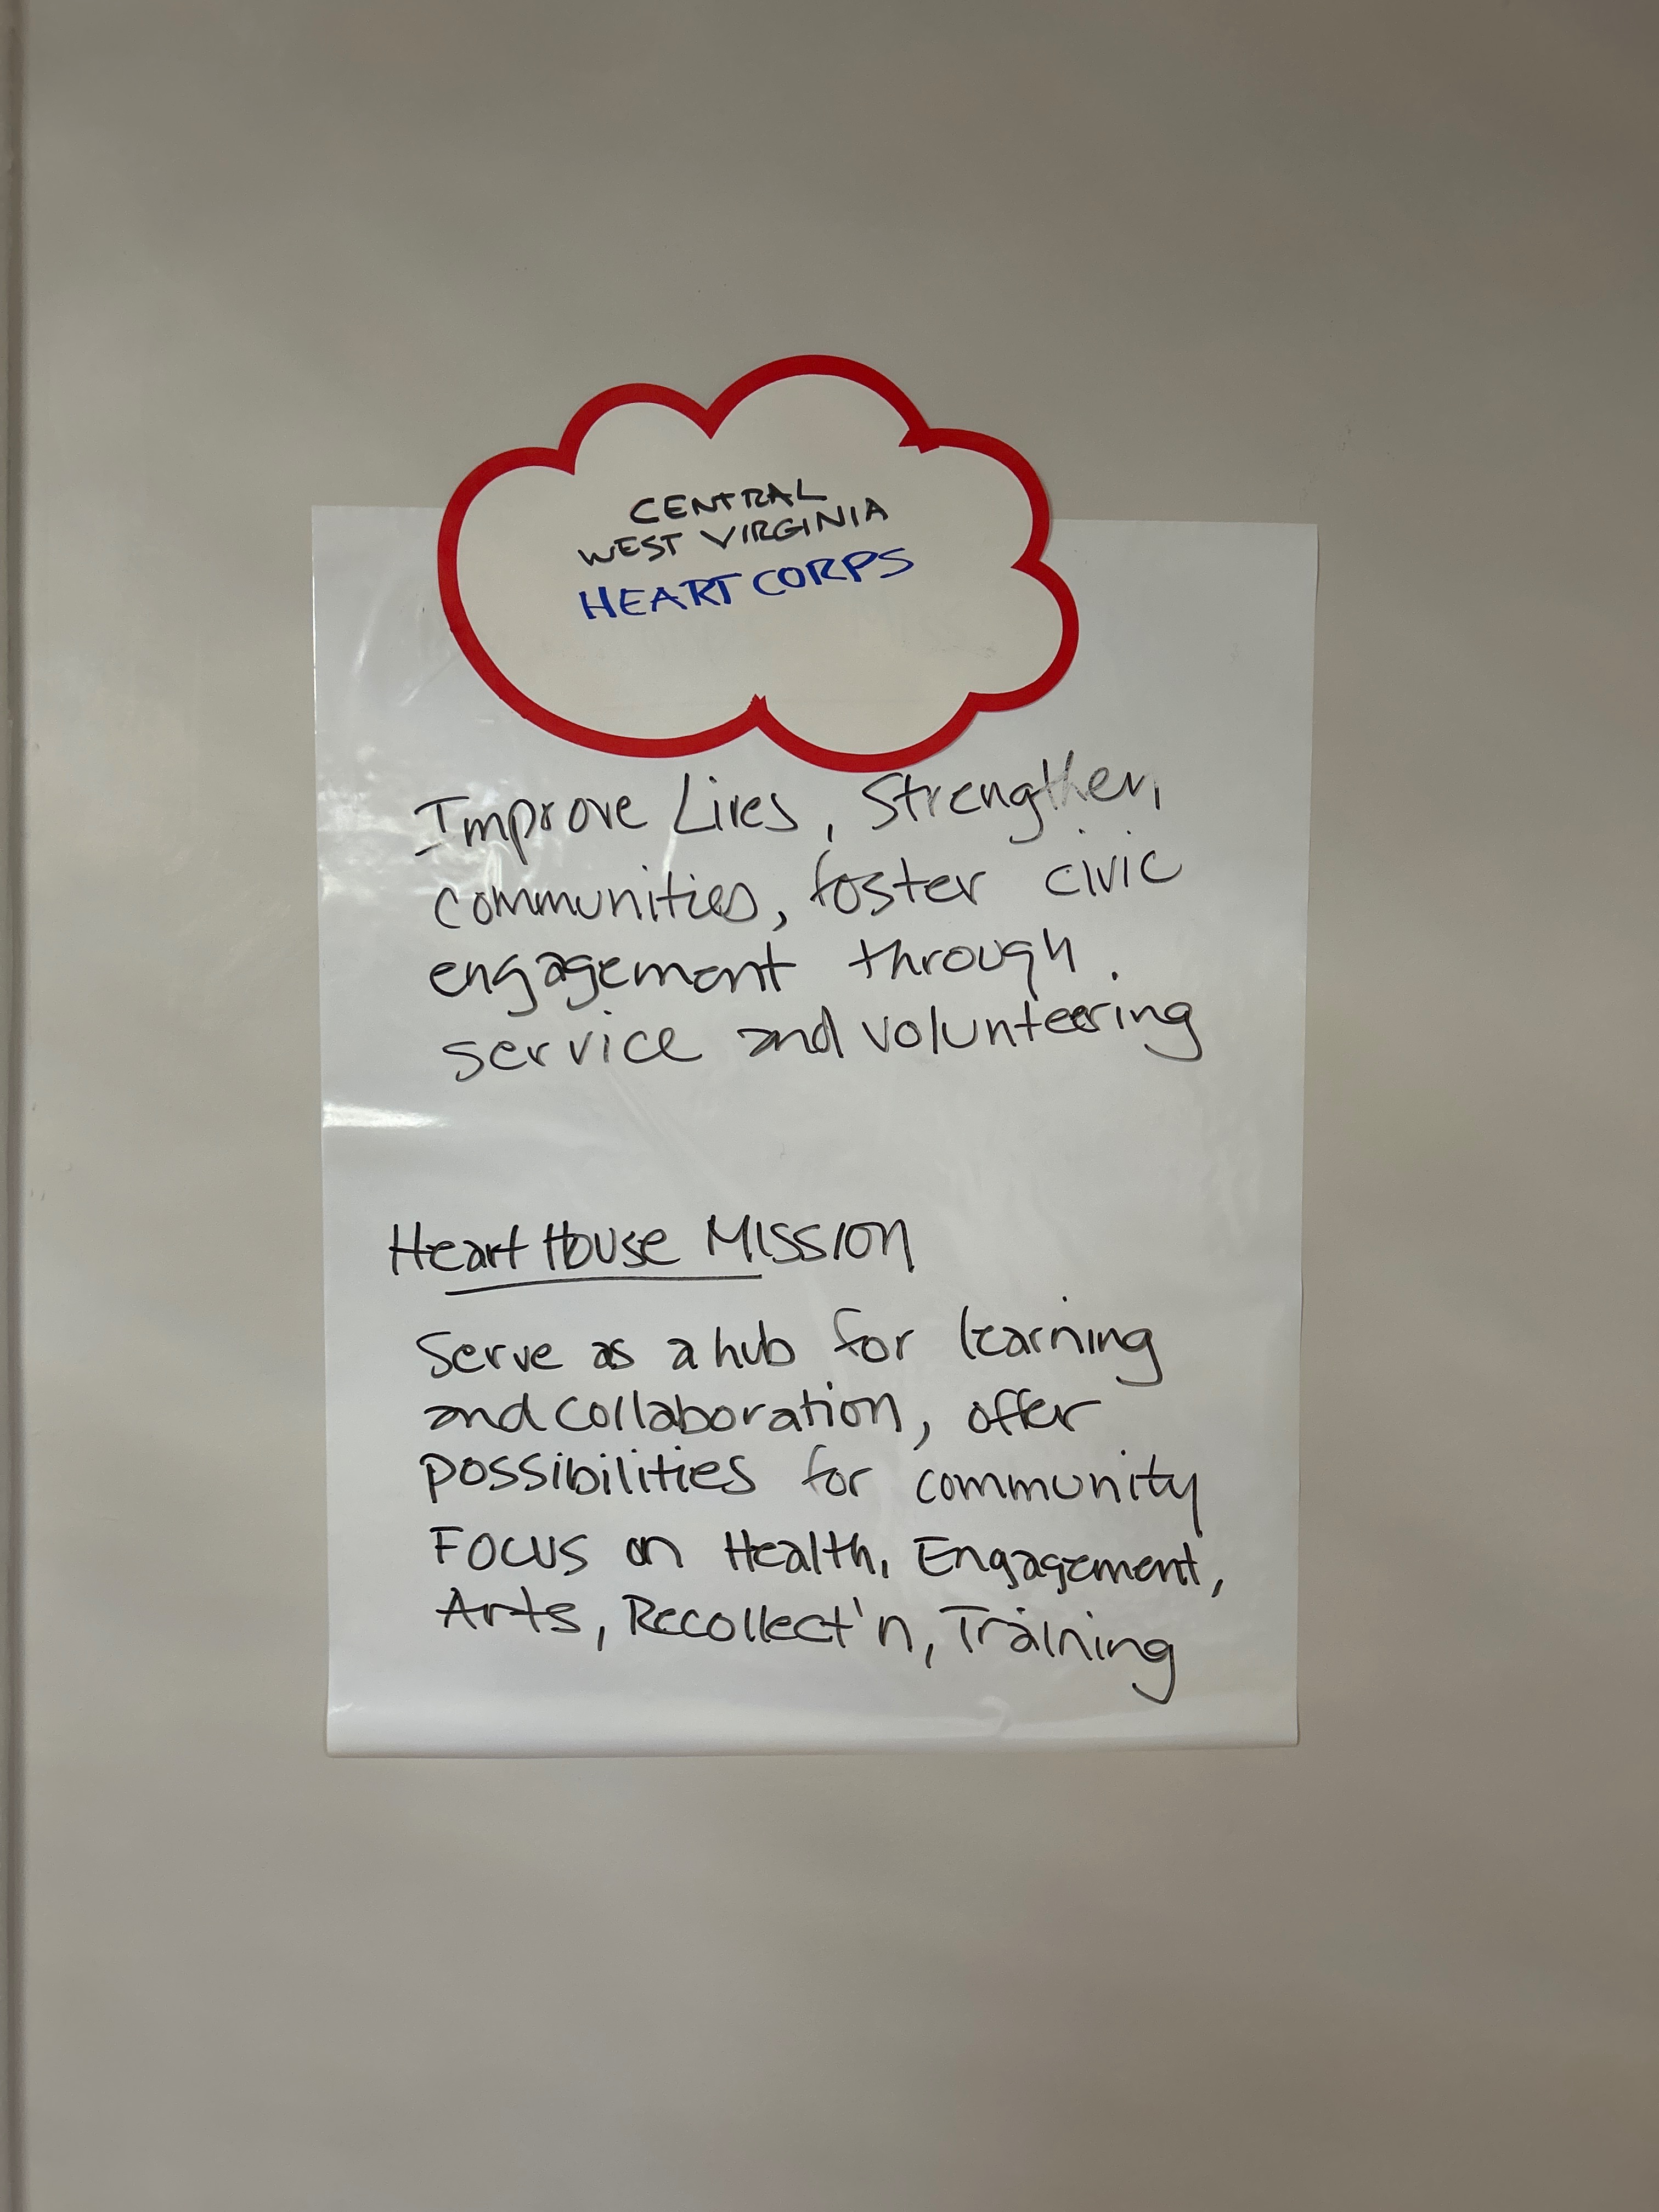 CENTRAL
WEST VIRGINIA
HEART CORPS
Improve Lives, Strengthen
communities, foster civic
engagement through
service and volunteering
Heart House Mission
Serve as a hub for learning
and collaboration, offer
possibilities for community
Focus on Health, Engagement,
Arts, Recollect'n, Training